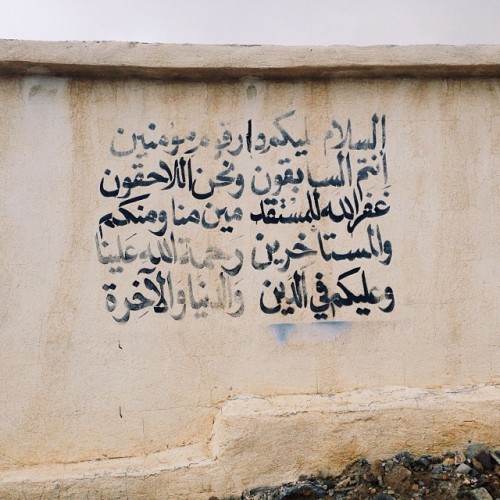 السلام ليكم دار قوم مؤمنين
انتم السابقون ونحن اللاحقون
غفر الله للمستقدمين منا ومنكم
والمستاخرين رحمة الله علينا
وعليكم في الدين والدنيا والآخرة